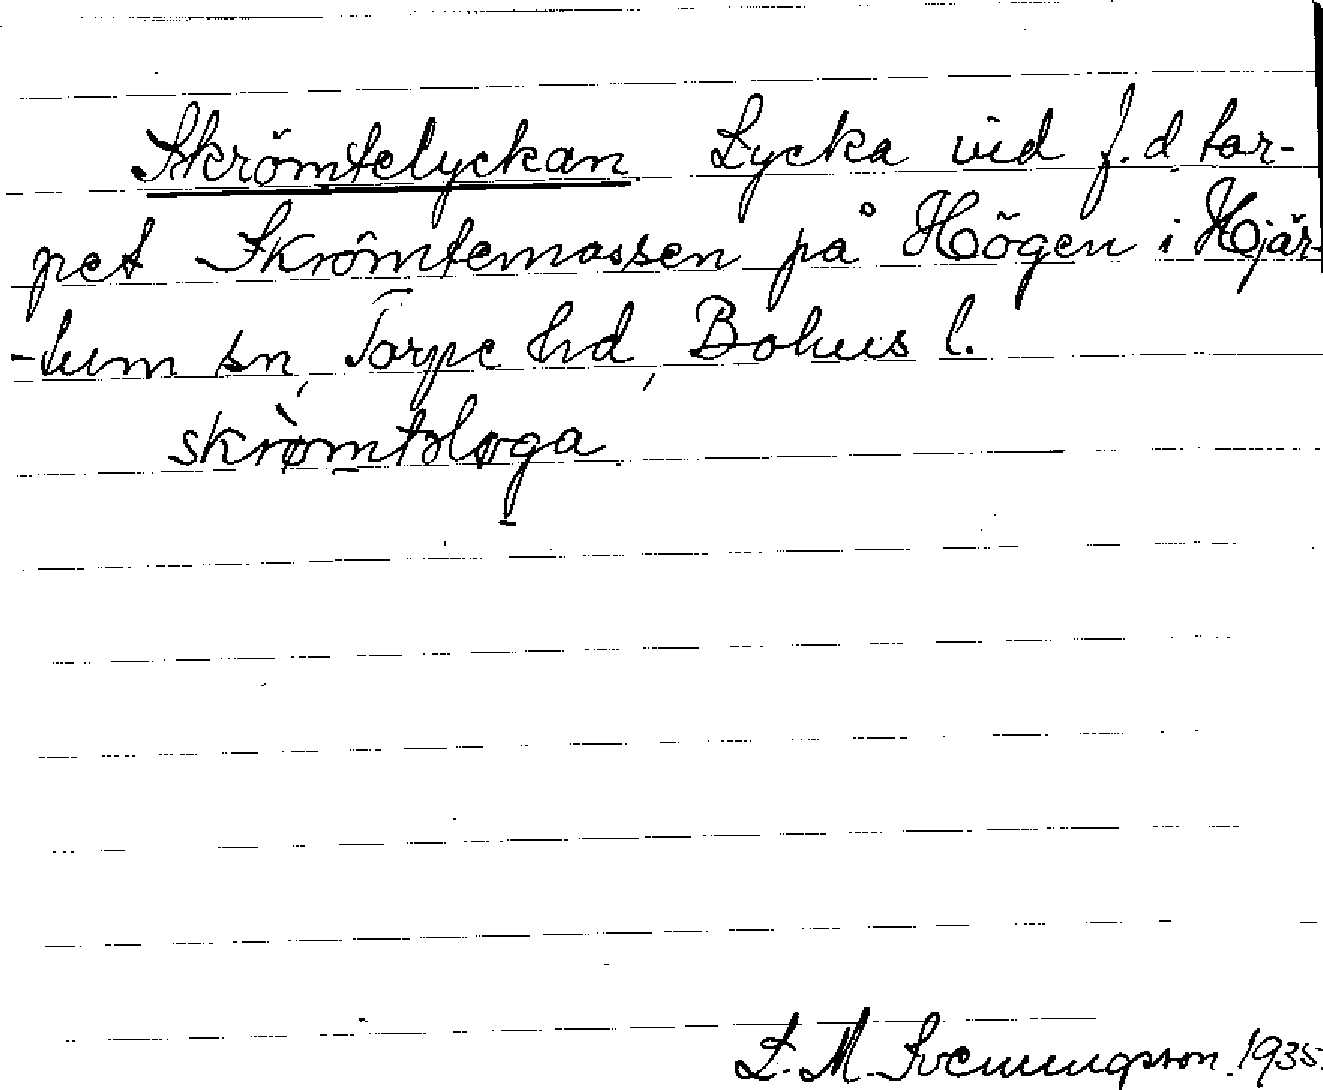 Skrömtelyckan Lycka vid f.d tor-
pet Skrömtemossen på Högen i Hjär-
-tum sn, Torpe hd, Bohus l.
skrömtəløga
L. M. Svenungsson. 1935.